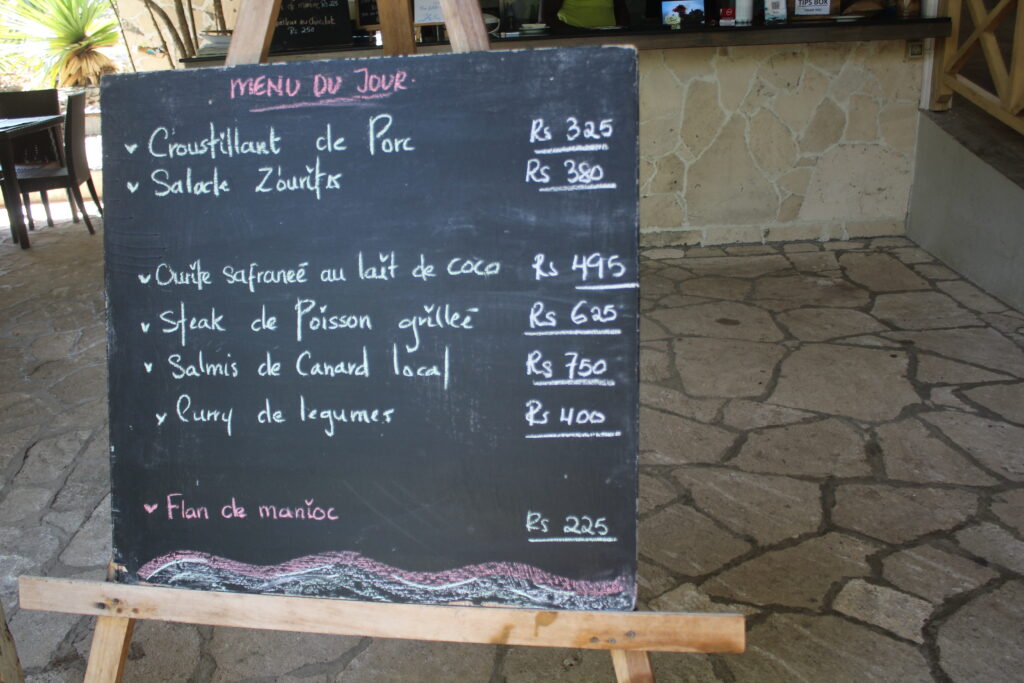 au chocolat
Rs 250
TIPS BOX
MENU DU JOUR
Croustillant de Porc Rs 325
Salade Z'ourites Rs 380
Ourite safraneé au lait de coco Rs 495
Steak de Poisson grilleé Rs 625
Salmis de Canard local Rs 750
Curry de legumes Rs 400
Flan de manioc Rs 225